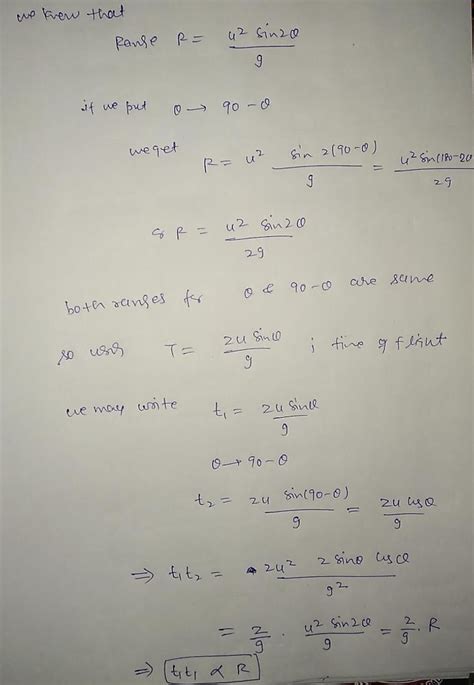 we know that
Range R = u² sin2θ / g
if we put θ → 90 - θ
we get R = u² sin 2(90-θ) / g = u² sin(180-2θ / 2g
& R = u² sin2θ / 2g
both ranges for θ & 90-θ are same
so using T = 2u sinθ / g ; time of flight
we may write t₁ = 2u sinθ / g
θ → 90 - θ
t₂ = 2u sin(90-θ) / g = 2u cosθ / g
⇒ t₁t₂ = 2u² 2 sinθ cosθ / g²
= 2/g . u² sin2θ / g = 2/g . R
⇒ t₁t₁ ∝ R